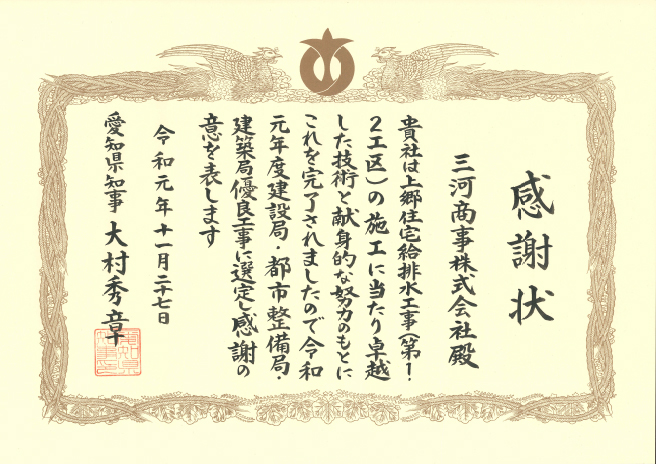 感謝状
三河商事株式会社殿
貴社は上郷住宅給排水工事(第1・
2工区)の施工に当たり卓越
した技術と献身的な努力のもとに
これを完了されましたので令和
元年度建設局・都市整備局・
建築局優良工事に選定し感謝の
意を表します
令和元年十一月二十七日
愛知県知事 大村秀章